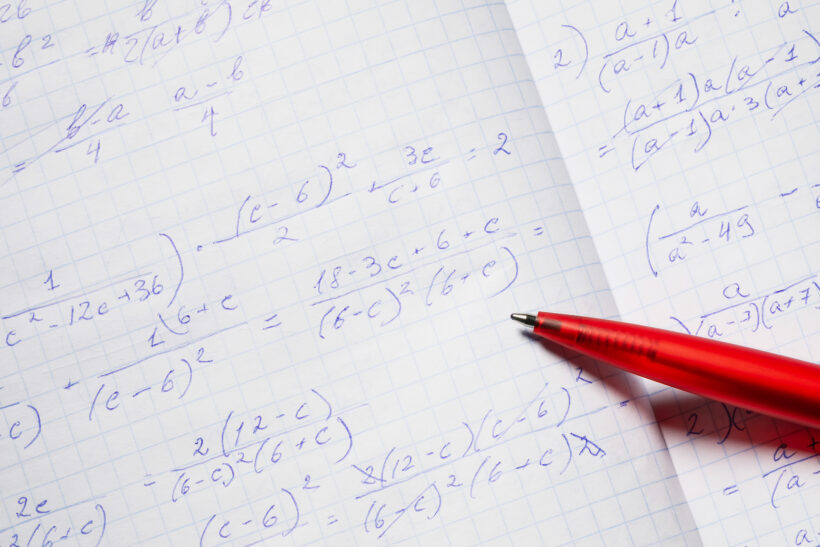 b² / b = 2(a+b)
= b-a / 4   a-b / 4
1 / c²-12c+36) · (c-6)² / 2 + 3c / c+6 = 2
-c) + 1\6+c / (c-6)² = 18-3c+6+c / (6-c)²(6+c) =
= 2(12-c) / (6-c)²(6+c)
2c / 2(6+c)   (c-6)² = 2(12-c)(c-6)² / (6-c)²(6+c)2 =
2) a+1 / (a-1)a : a
= (a+1)a(a-1) / (a-1)a·3(a+
(a / a²-49 -
) a / (a-7)(a+7)
2
= a+ / (a-
a